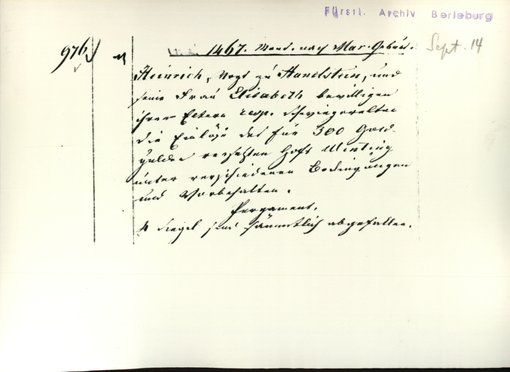 Fürstl. Archiv Berleburg
Sept. 14
976
1467. Mond. nach Mar. Geburt.
Heinrich, Vogt zu Hunolstein, und
seine Frau Elisabeth bewilligen
ihren Eltern resp. Schwiegereltern
die Einlöse des für 300 Gold-
gulden versetzten Hofs Wintrig
unter verschiedenen Bedingungen
und Vorbehalten.
Pergament.
4 Siegel sind sämmtlich abgefallen.